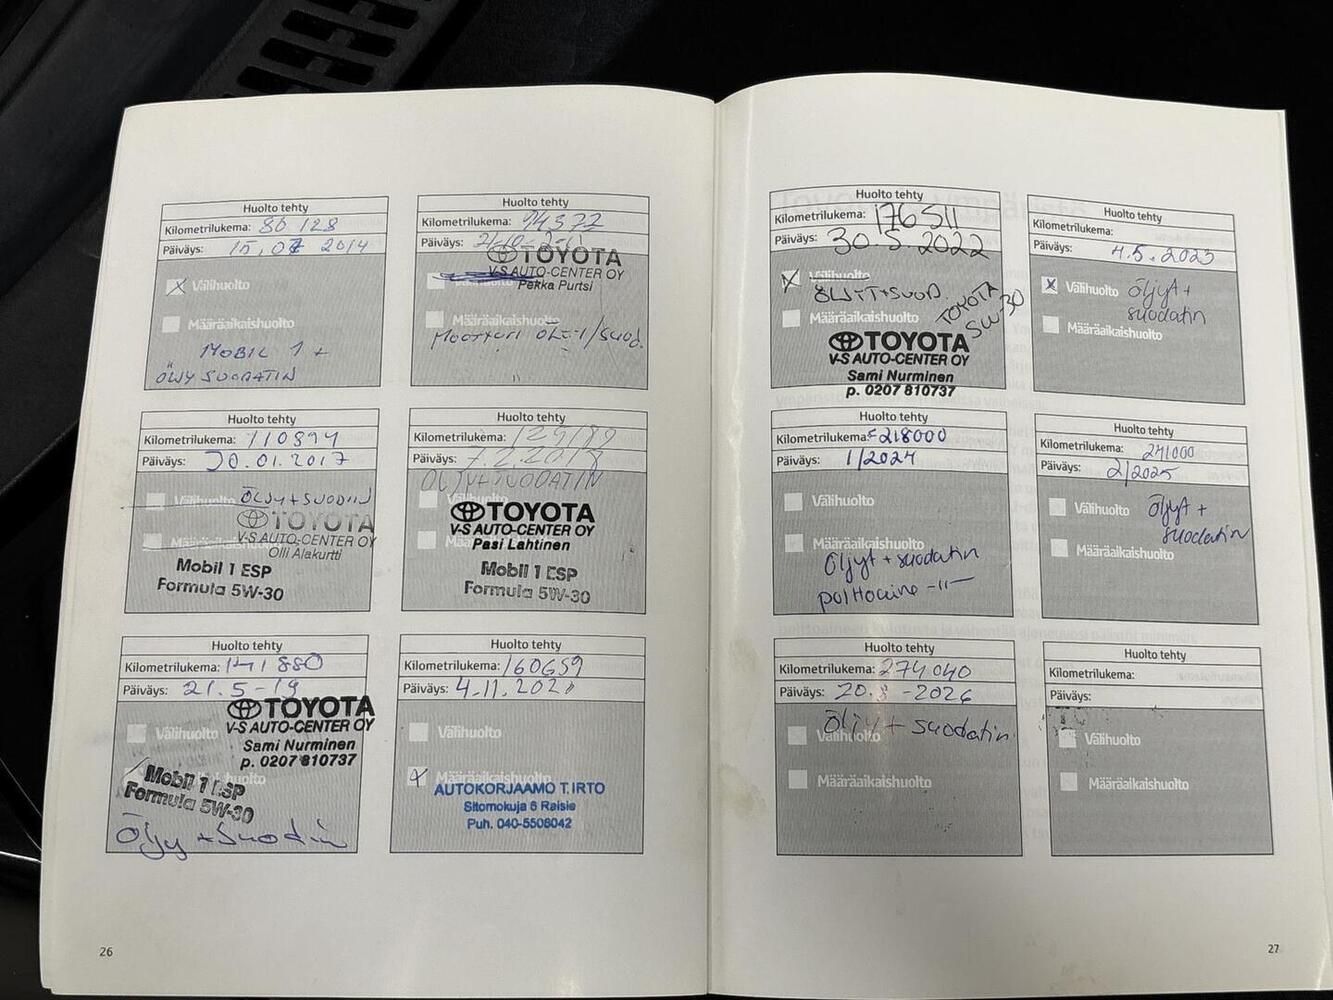 Huolto tehty
Kilometrilukema: 80 128
Päiväys: 15.07 2014
Välihuolto
Määräaikaishuolto
MOBIL 1 +
ÖLJYSUODATIN
Huolto tehty
Kilometrilukema: 94377
Päiväys:
TOYOTA
V-S AUTO-CENTER OY
Pekka Purtsi
Moottori öljy/suod.
Huolto tehty
Kilometrilukema: 110894
Päiväys: 30.01.2017
Välihuolto ÖLJY+SUODIN
Määräaikaishuolto
TOYOTA
V-S AUTO-CENTER OY
Olli Alakurtti
Mobil 1 ESP
Formula 5W-30
Huolto tehty
Kilometrilukema: 129189
Päiväys: 7.2.2018
ÖLJY+SUODATIN
TOYOTA
V-S AUTO-CENTER OY
Pasi Lahtinen
Mobil 1 ESP
Formula 5W-30
Huolto tehty
Kilometrilukema: 141 880
Päiväys: 21.5-19
TOYOTA
V-S AUTO-CENTER OY
Sami Nurminen
p. 0207 810737
Välihuolto
Mobil 1 ESP
Formula 5W-30
Öljy + Suodin
Huolto tehty
Kilometrilukema: 160659
Päiväys: 4.11.202
Välihuolto
Määräaikaishuolto
AUTOKORJAAMO T. IRTO
Sitomokuja 6 Raisio
Puh. 040-5506042
26
Huolto tehty
Kilometrilukema: 176511
Päiväys: 30.5.2022
Välihuolto
ÖLJYT+SUOD.
Määräaikaishuolto
TOYOTA
5W-30
TOYOTA
V-S AUTO-CENTER OY
Sami Nurminen
p. 0207 810737
Huolto tehty
Kilometrilukema:
Päiväys: 4.5.2023
Välihuolto öljyt +
suodatin
Määräaikaishuolto
Huolto tehty
Kilometrilukema: 218000
Päiväys: 1/2024
Välihuolto
Määräaikaishuolto
öljyt + suodatin
polttoaine -11-
Huolto tehty
Kilometrilukema: 241000
Päiväys: 2/2025
Välihuolto öljyt +
suodatin
Määräaikaishuolto
Huolto tehty
Kilometrilukema: 274040
Päiväys: 20. -2026
Välihuolto
öljy + suodatin
Määräaikaishuolto
Huolto tehty
Kilometrilukema:
Päiväys:
Välihuolto
Määräaikaishuolto
27